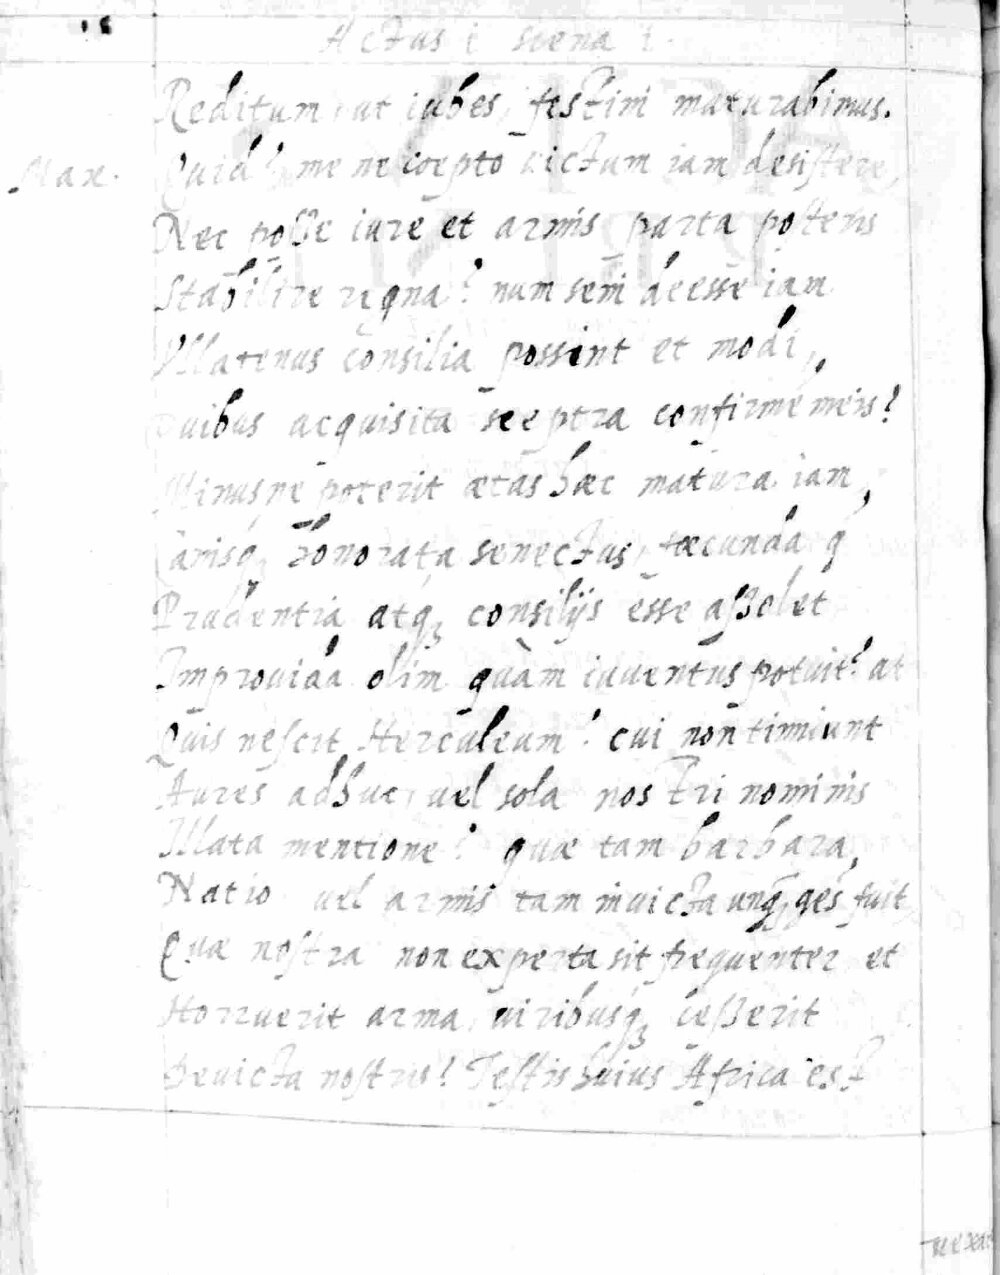 Actus i scena i.
Reditum, ut iubes, festini maturabimus.
Max. Quid? me ne coepto victum iam desistere,
Nec posse iure et armis parta posteris
Stabilire regna? num semi deesse iam
Vllatenus consilia possint et modi,
Quibus acquisita sceptra confirmē meis?
Minusne poterit ætas hæc matura iam,
Canisq; honorata senectus, fæcunda q̄
Prudentia atq; consilijs esse aßolet
Improuida olim quàm iuuentus potuit? at
Quis nescit Herculeum? cui non tinniunt
Aures adhuc, uel sola nostri nominis
Illata mentione? quæ tam barbara,
Natio uel armis tam inuicta unq̄ gēs fuit
Quæ nostra non experta sit frequenter et
Horruerit arma, uiribusq; ceßerit
Deuicta nostris? Testis huius Africa est